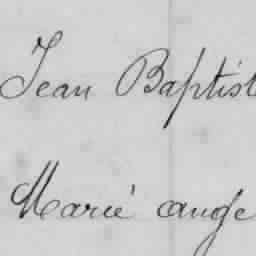 Jean Baptist
Marié ange